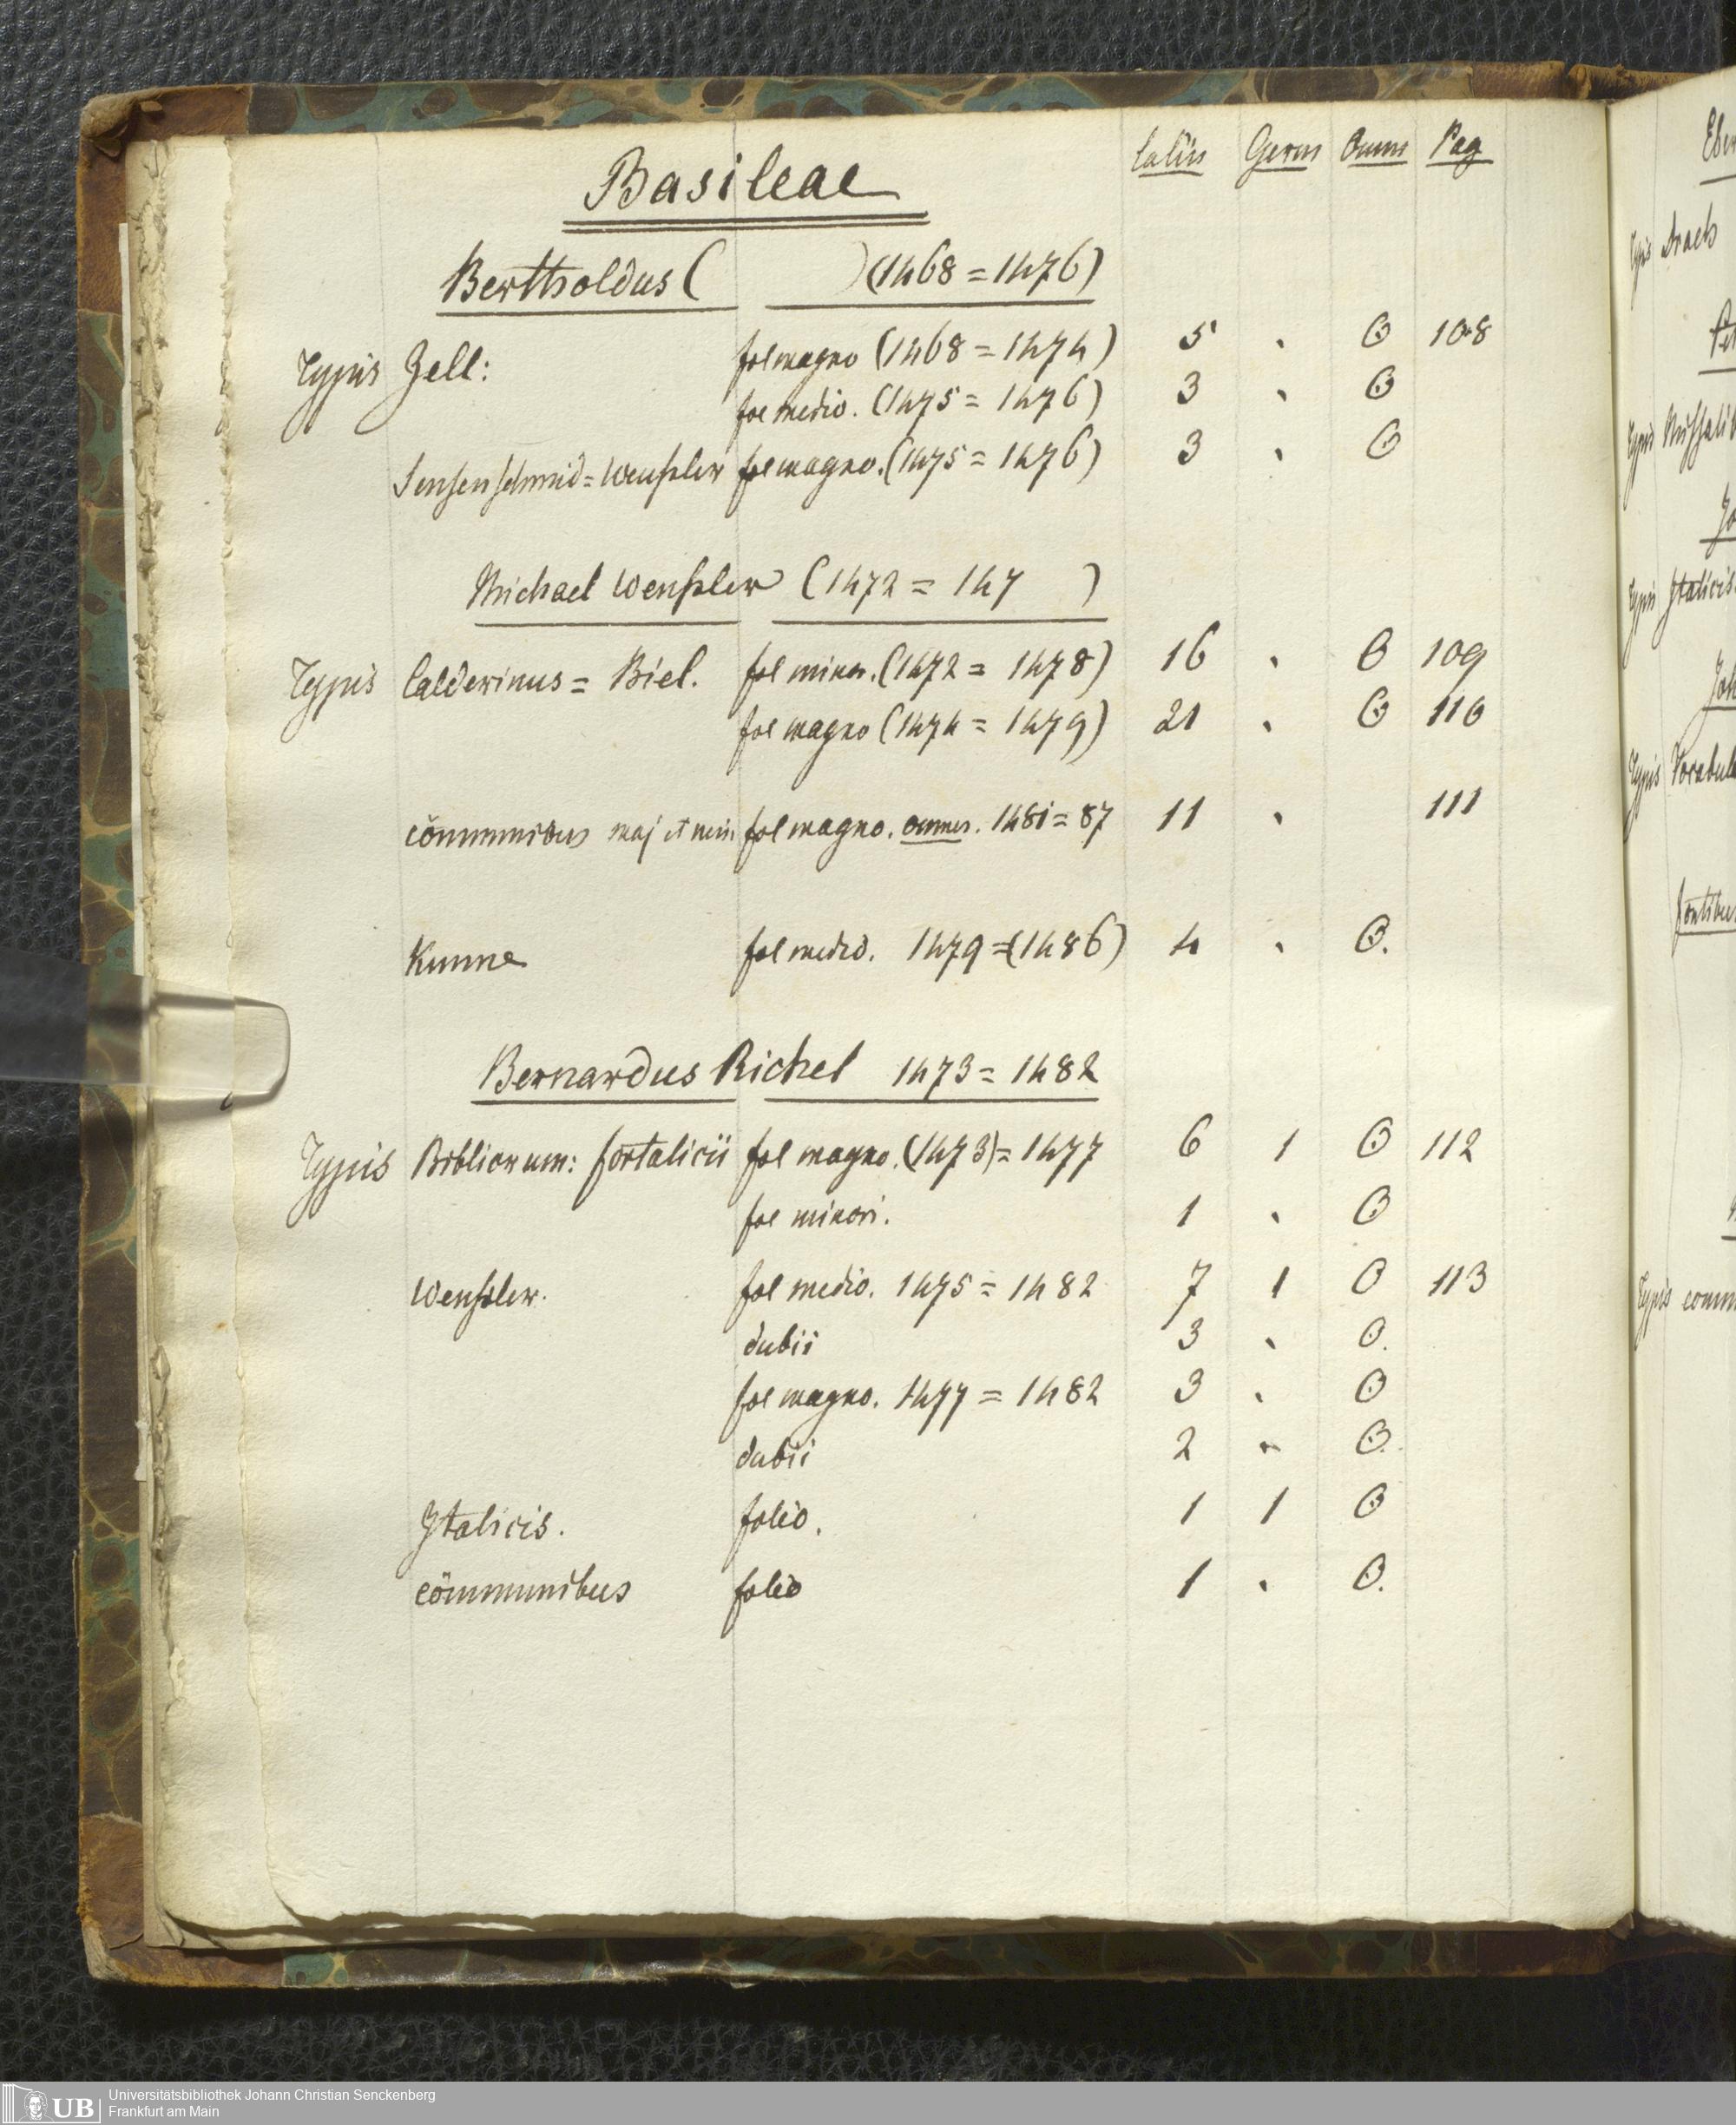 Latin Germ Omn Pag
Basileae
Bertholdus ( ) (1468 = 1476)
Typis Zell: fol magno (1468 = 1474) 5 . O 108
fol medio. (1475 = 1476) 3 . O
Sensenschmid = Wenßler fol magno. (1475 = 1476) 3 . O
Michael Wenßler (1472 = 147 )
Typis Calderinus = Biel. fol minor. (1472 = 1478) 16 . O 109
fol magno (1474 = 1479) 21 . O 110
cōmmunibus maj et min fol magno. omnes. 1481 = 87 11 . 111
Kunne fol medio. 1479 = (1486) 4 . O.
Bernardus Richel 1473 = 1482
Typis Bibliorum: fortalicii fol magno. (1473) = 1477 6 1 O 112
fol minori. 1 . O
Wenßler. fol medio. 1475 = 1482 7 1 O 113
dubii 3 . O.
fol magno. 1477 = 1482 3 . O
dubii 2 . O.
Italicis. folio. 1 1 O
cōmmunibus folio 1 . O.
Typis
Typis
Typis Italicis.
Typis
Typis comm
UB Universitätsbibliothek Johann Christian Senckenberg
Frankfurt am Main